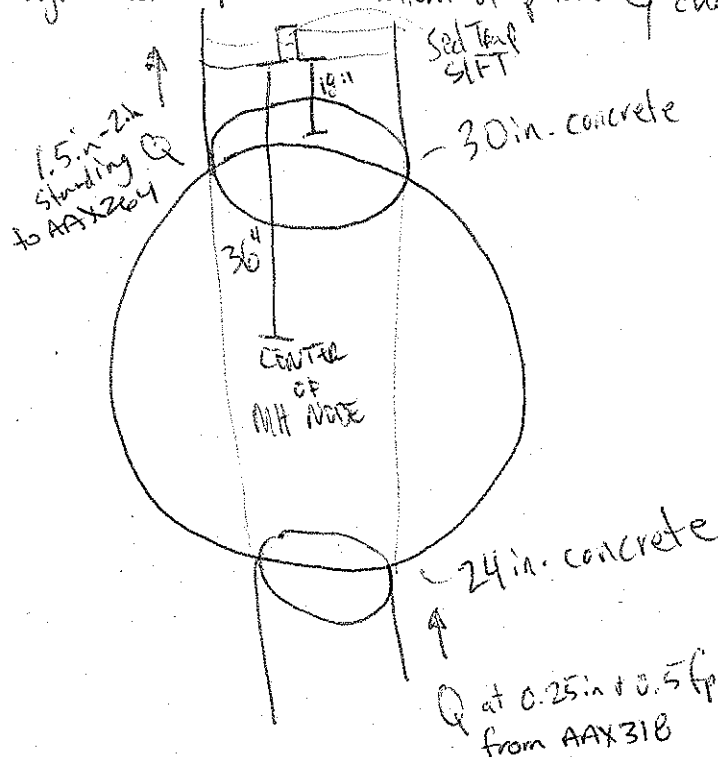 Sed Trap
SIFT
18"
30 in. concrete
1.5in-2in
standing Q
to AAX264
36"
CENTER
OF
MH NODE
24 in. concrete
Q at 0.25in & 0.5 fp
from AAX318